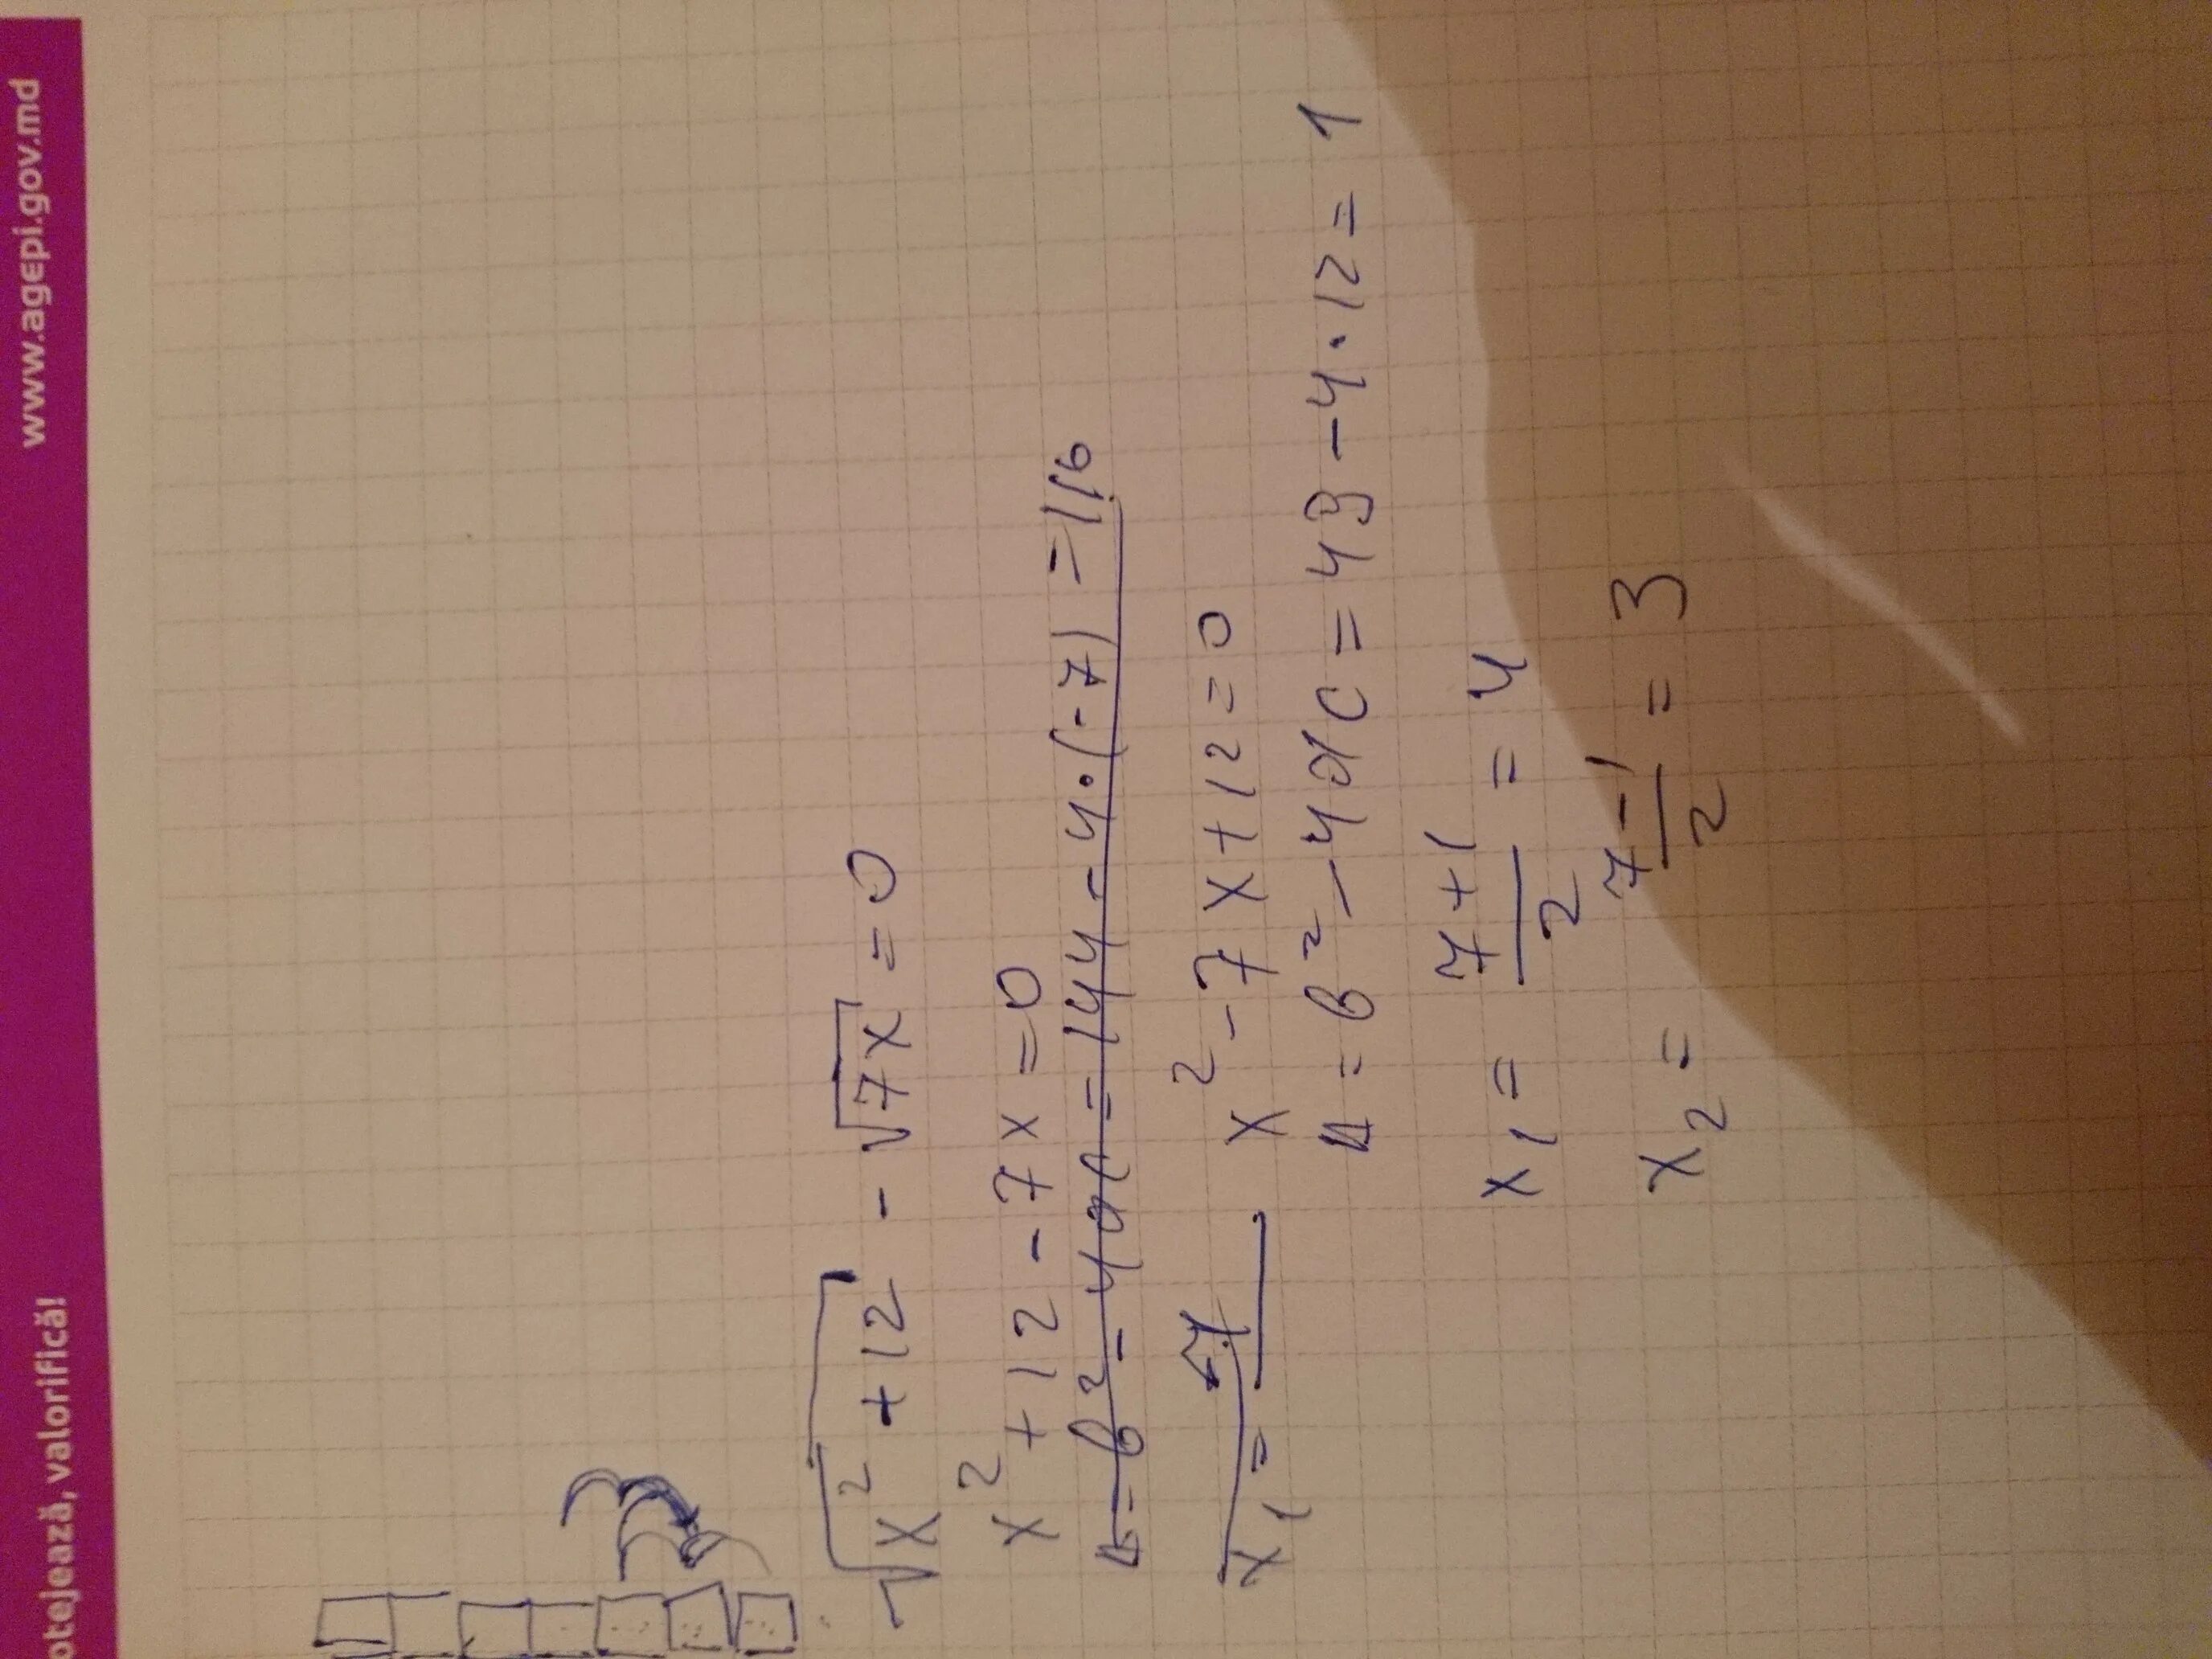 otejează, valorifică! www.agepi.gov.md
√x² + 12 - √7x = 0
x² + 12 - 7x = 0
Δ = b² - 4ac = 144 - 4·(-7) = 116
x₁ =
x² - 7x + 12 = 0
Δ = b² - 4ac = 49 - 4·12 = 1
x₁ = 7+1/2 = 4
x₂ = 7-1/2 = 3